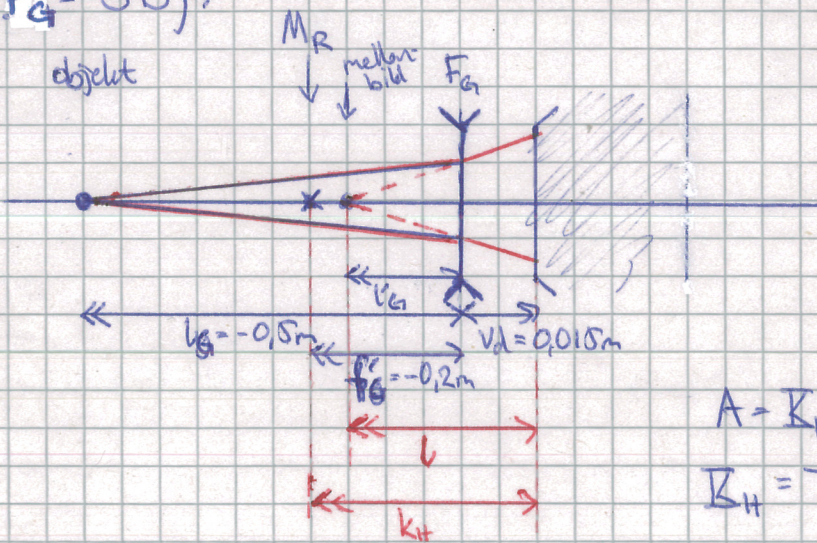 objekt
M_R
mellan-
bild
F_G
l'_G
l_G = -0,5m
V_d = 0,015m
f'_G = -0,2m
l
k_H
A = K
K_H =